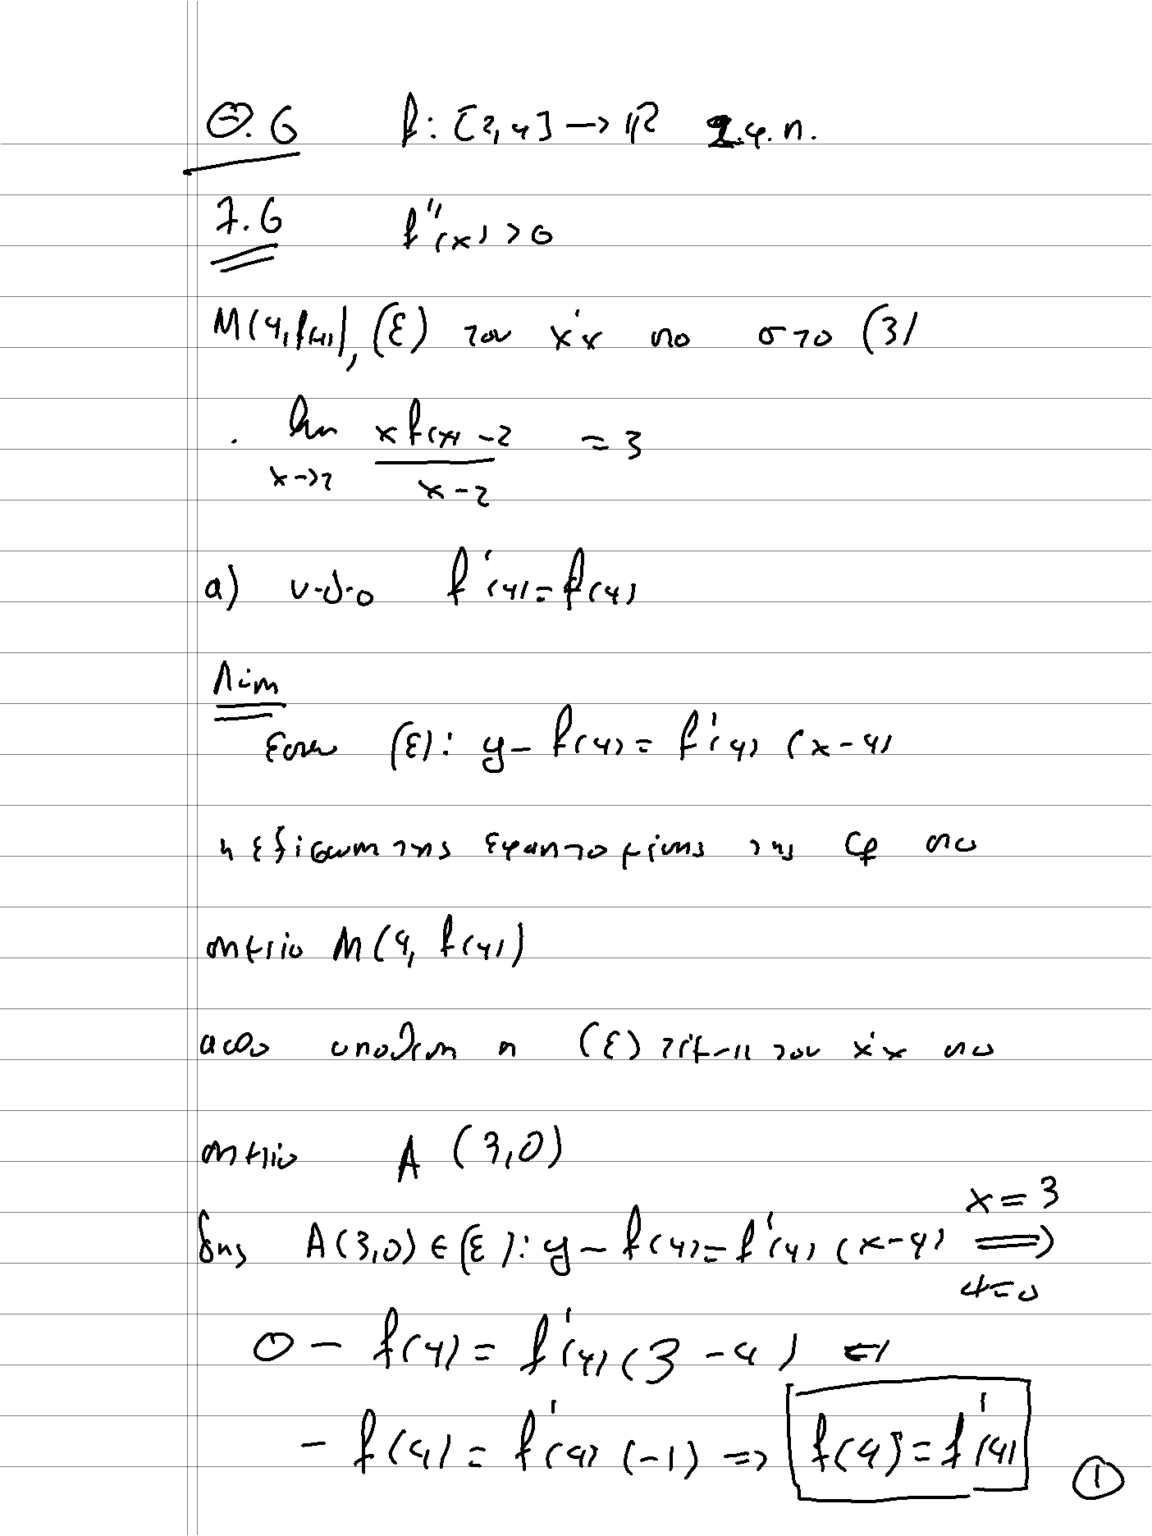 Θ.6 f: [2,4] → ℝ 2.φ.π.
7.6 f''(x) > 0
M(4, f(4)), (ε) του x'x στο (3)
lim x→2 xf(x) - 2 / x - 2 = 3
α) ν.δ.ο f'(4) = f(4)
Λύση
Έστω (ε): y - f(4) = f'(4) (x - 4)
η εξίσωση της εφαπτομένης της Cf στο
σημείο M(4, f(4))
από υπόθεση η (ε) τέμνει τον x'x στο
σημείο A (3,0)
δης A(3,0) ∈ (ε): y - f(4) = f'(4) (x - 4) x=3 ⟹ y=0
0 - f(4) = f'(4) (3 - 4) ⇔
- f(4) = f'(4) (-1) ⇒ f(4) = f'(4)
1